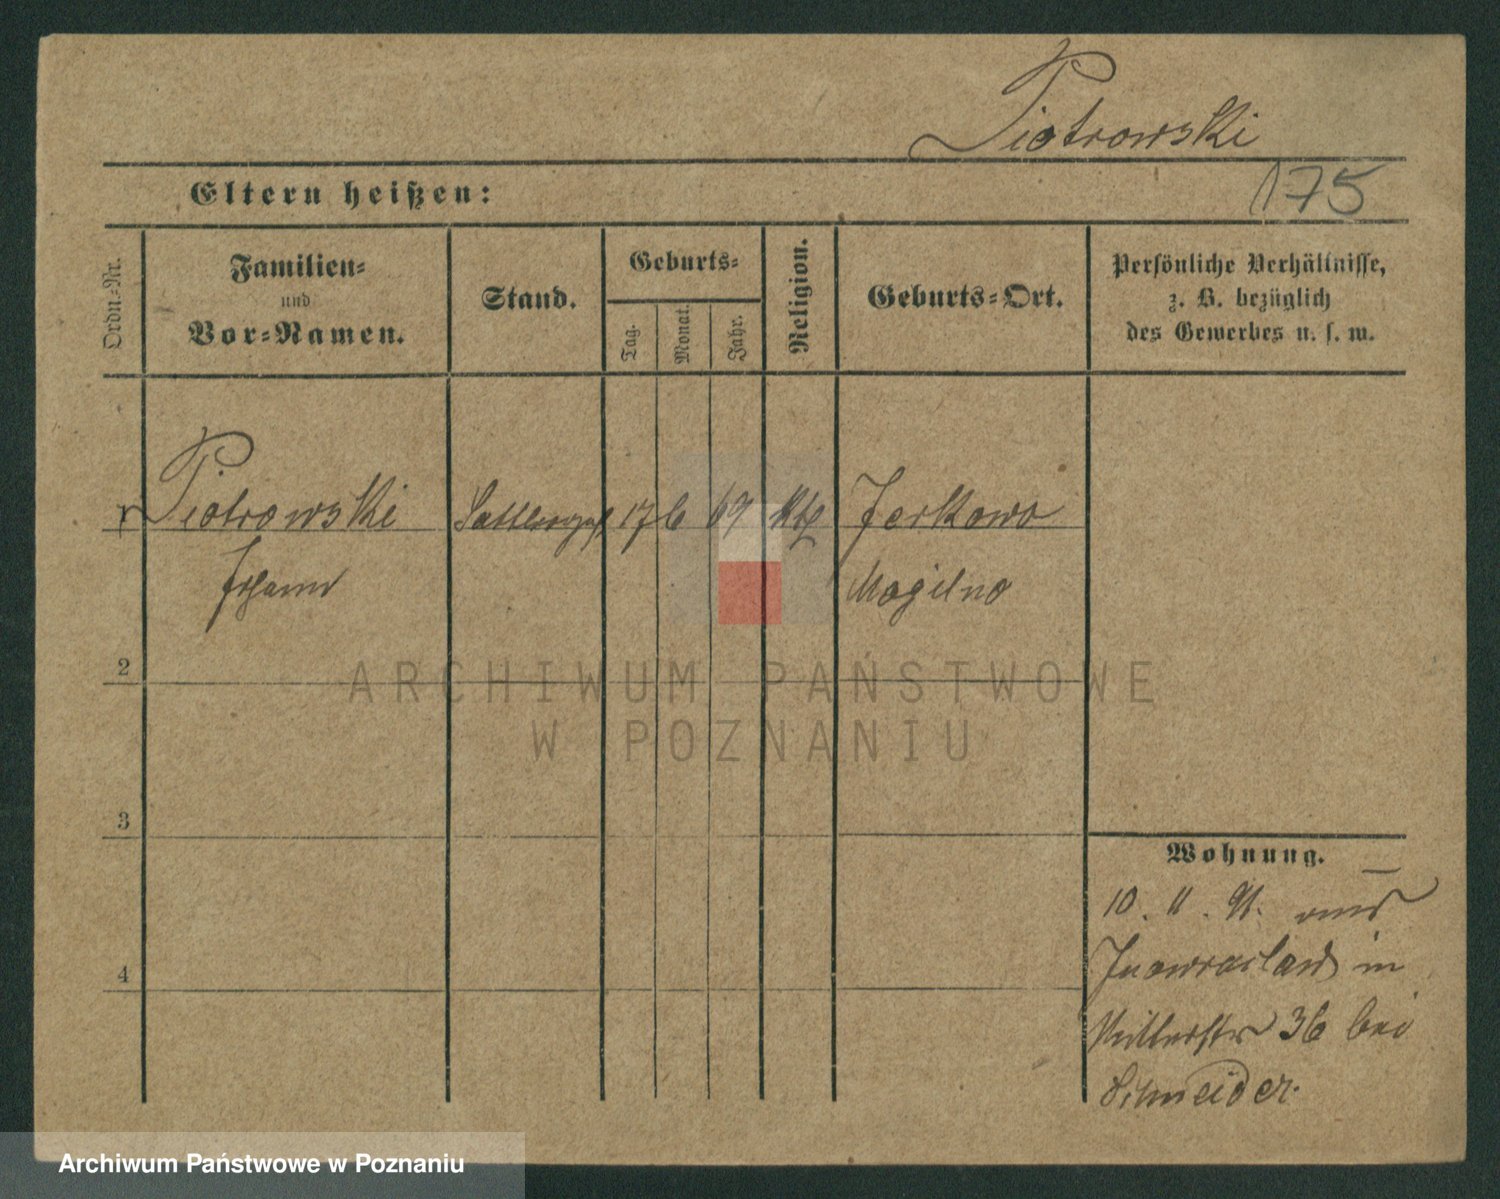 Piotrowski
Eltern heißen:
175
Ordn.-Nr.
Familien-
und
Vor-Namen.
Stand.
Geburts-
Tag.
Monat.
Jahr.
Religion.
Geburts-Ort.
Persönliche Verhältnisse,
z. B. bezüglich
des Gewerbes u. s. w.
1 Piotrowski 17 6 69 kth Jerkowo
Johann Mogilno
2
ARCHIWUM PAŃSTWOWE
W POZNANIU
3
Wohnung.
10. 11. 91. aus
Inowraclaw in
4
36 bei
Schneider.
Archiwum Państwowe w Poznaniu